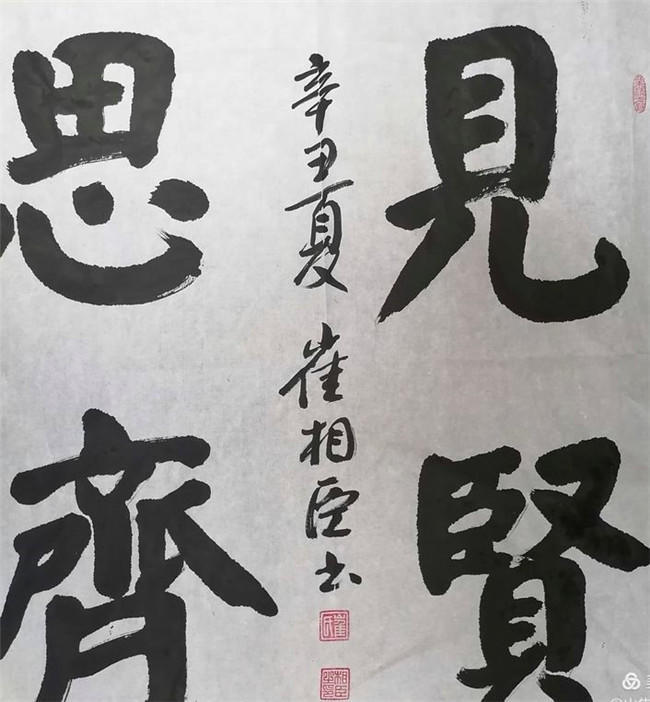 見賢
思齊
辛丑夏 崔相臣书
崔氏